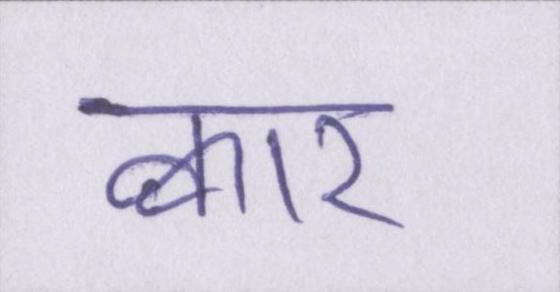 कार